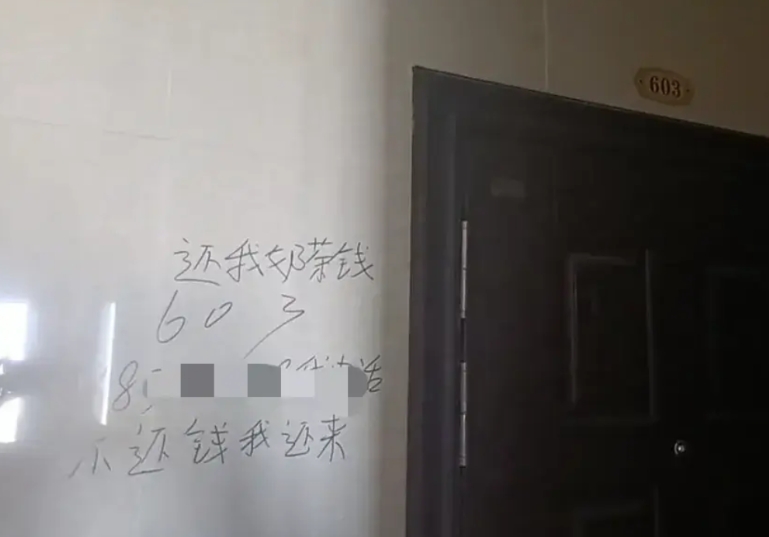 603
还我奶茶钱
603
8 话
不还钱我还来